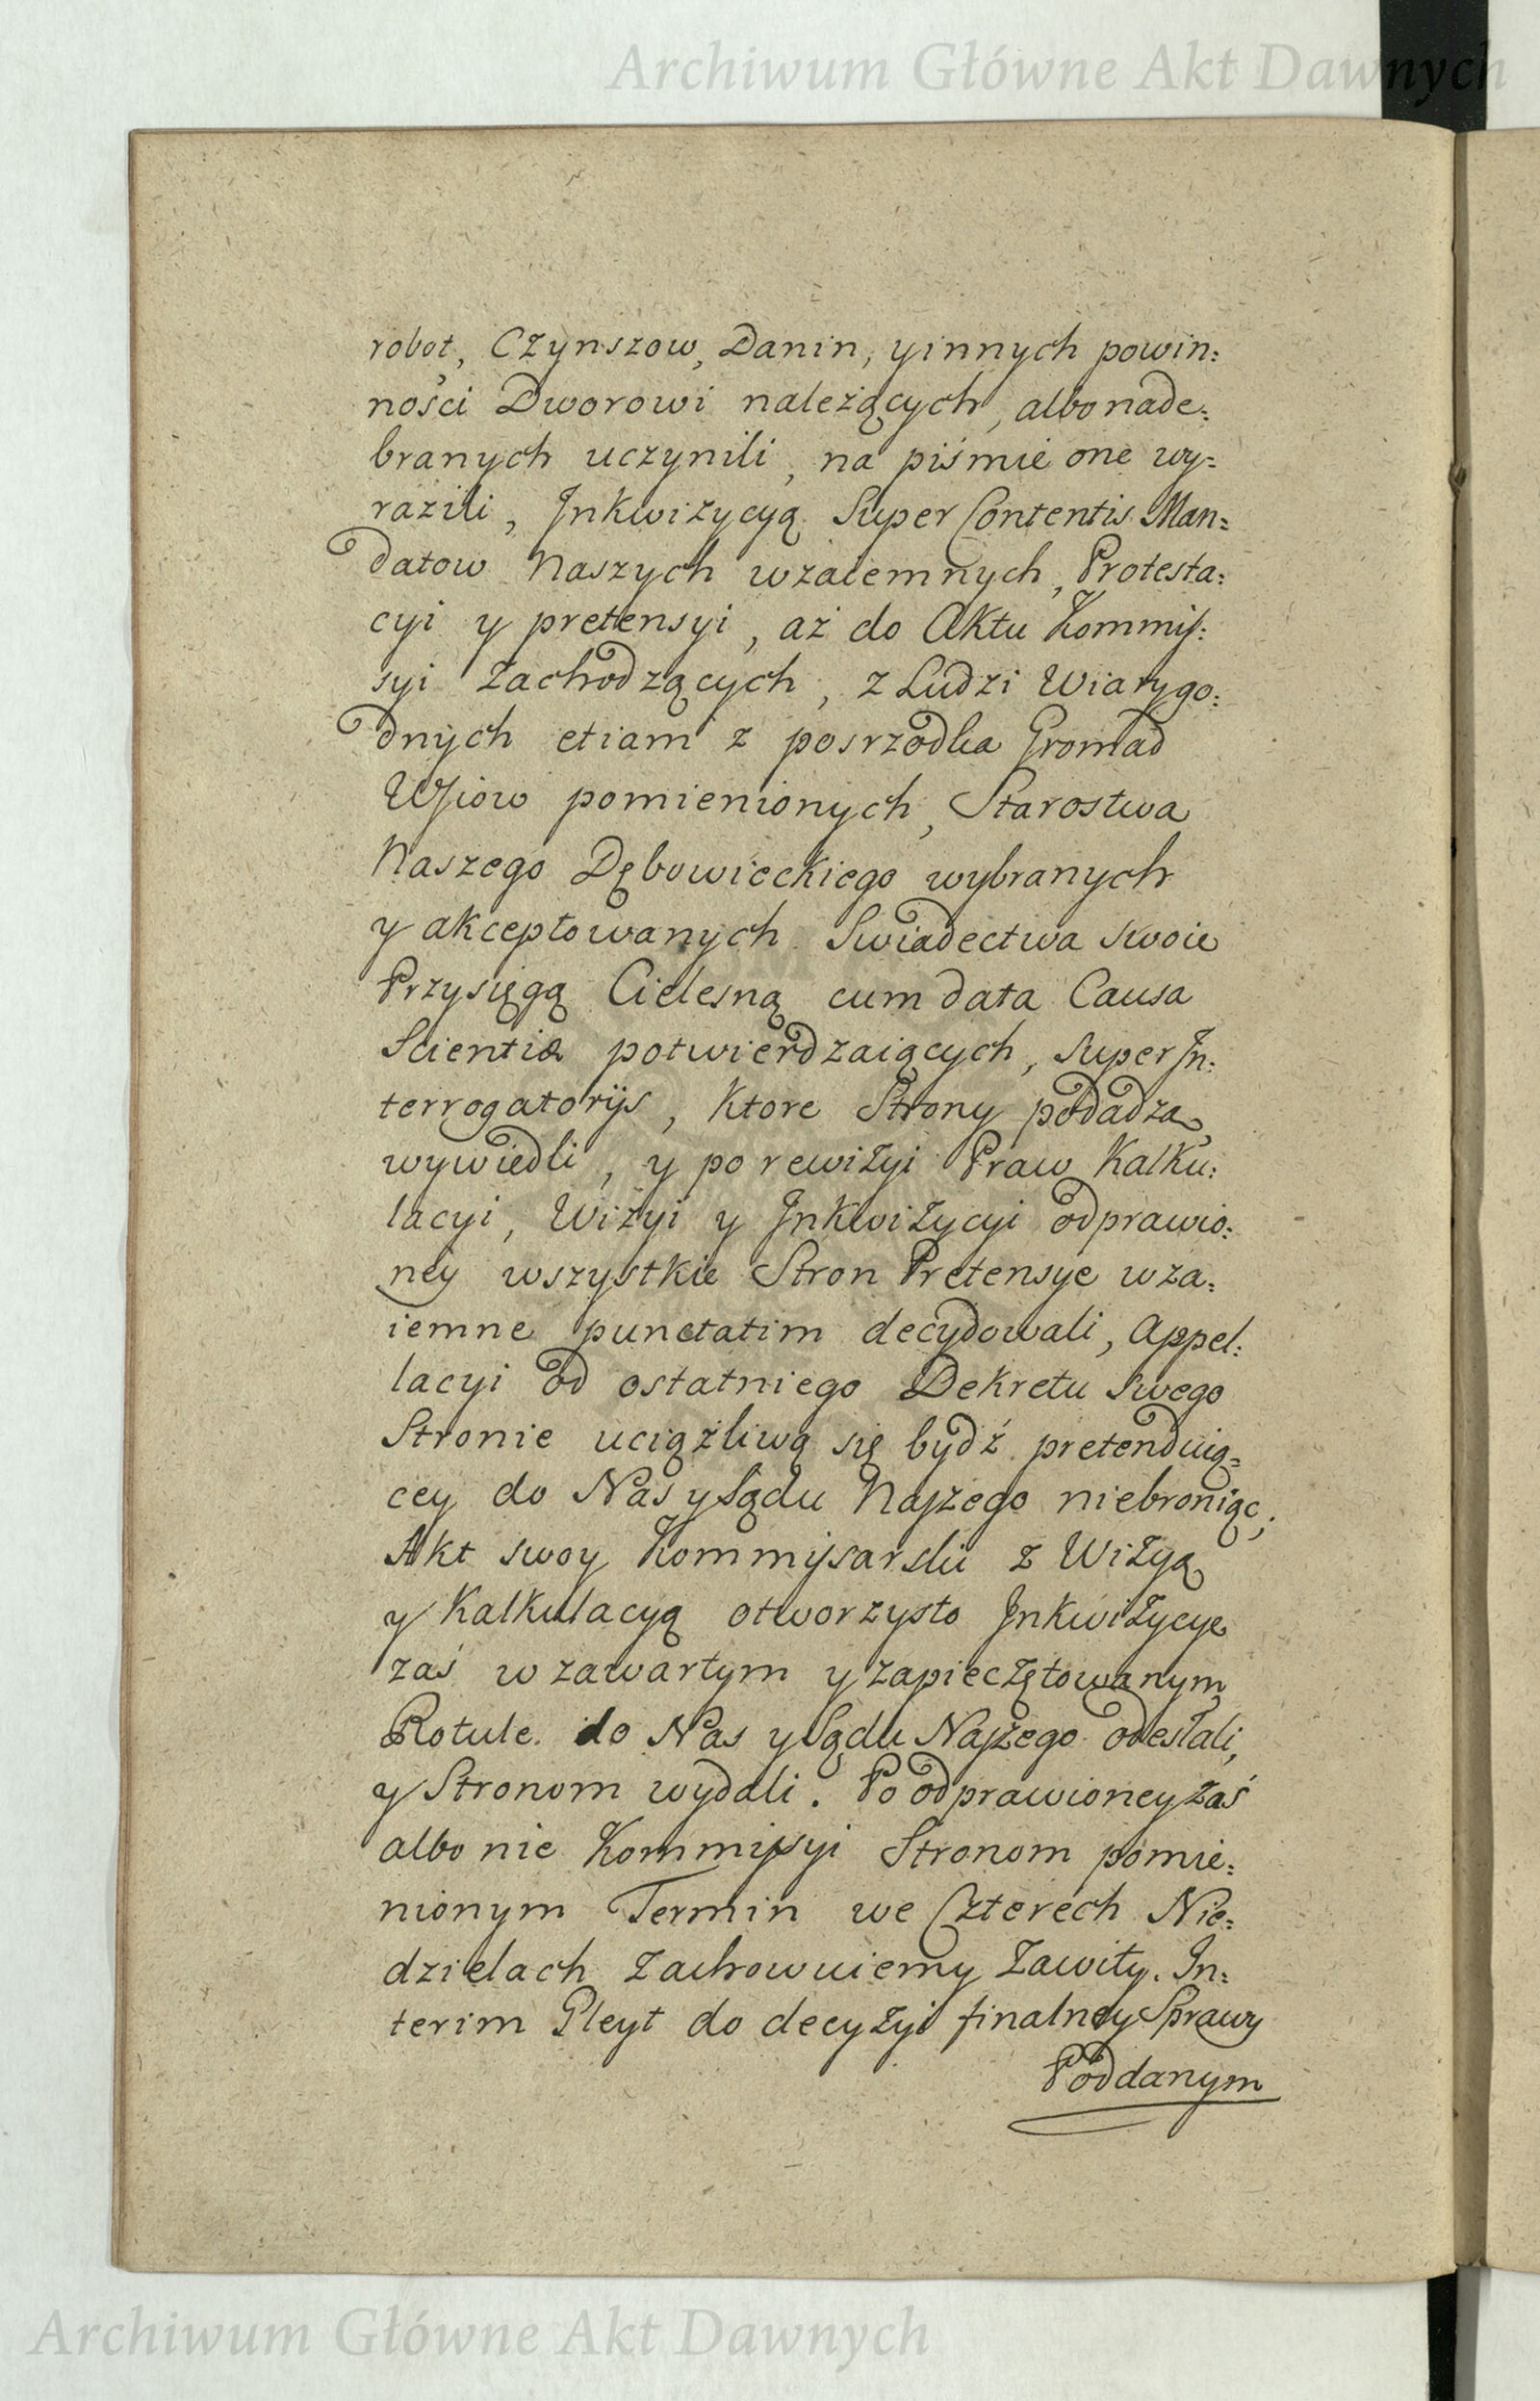 Archiwum Główne Akt Dawnych
robot, Czynszow, Danin, y innych powin:
ności Dworowi należących, albo nade:
branych uczynili, na piśmie one wy:
razili, Inkwizycyą Super Contentis Man:
datow Naszych wzaiemnych, Protesta:
cyi y pretensyi, aż do Aktu Kommis:
syi zachodzących, z Ludzi Wiarygo:
dnych etiam z posrzodka Gromad
Wsiow pomienionych, Starostwa
Naszego Dębowieckiego wybranych
y akceptowanych Swiadectwa swoie
Przysięgą Cielesną cum data Causa
Scientiæ potwierdzaiących, super In:
terrogatorijs, ktore Strony podadzą,
wywiedli, y po rewizyi Praw Kalku:
lacyi, Wizyi y Inkwizycyi odprawio:
ney wszystkie Stron Pretensye wza:
iemne punctatim decydowali, Appel:
lacyi od ostatniego Dekretu swego
Stronie uciążliwą się bydź pretenduią:
cey do Nas y Sądu Naszego niebroniąc;
Akt swoy Kommissarski z Wizyą
y Kalkulacyą otworzysto Inkwizycye
zaś w zawartym y zapieczętowanym
Rotule do Nas y Sądu Naszego odesłali,
y Stronom wydali. Po odprawioney zaś
albo nie Kommissyi Stronom pomie:
nionym Termin we Czterech Nie:
dzielach zachowuiemy Zawity. In:
terim Gleyt do decyzyi finalney Sprawy
Poddanym
Archiwum Główne Akt Dawnych